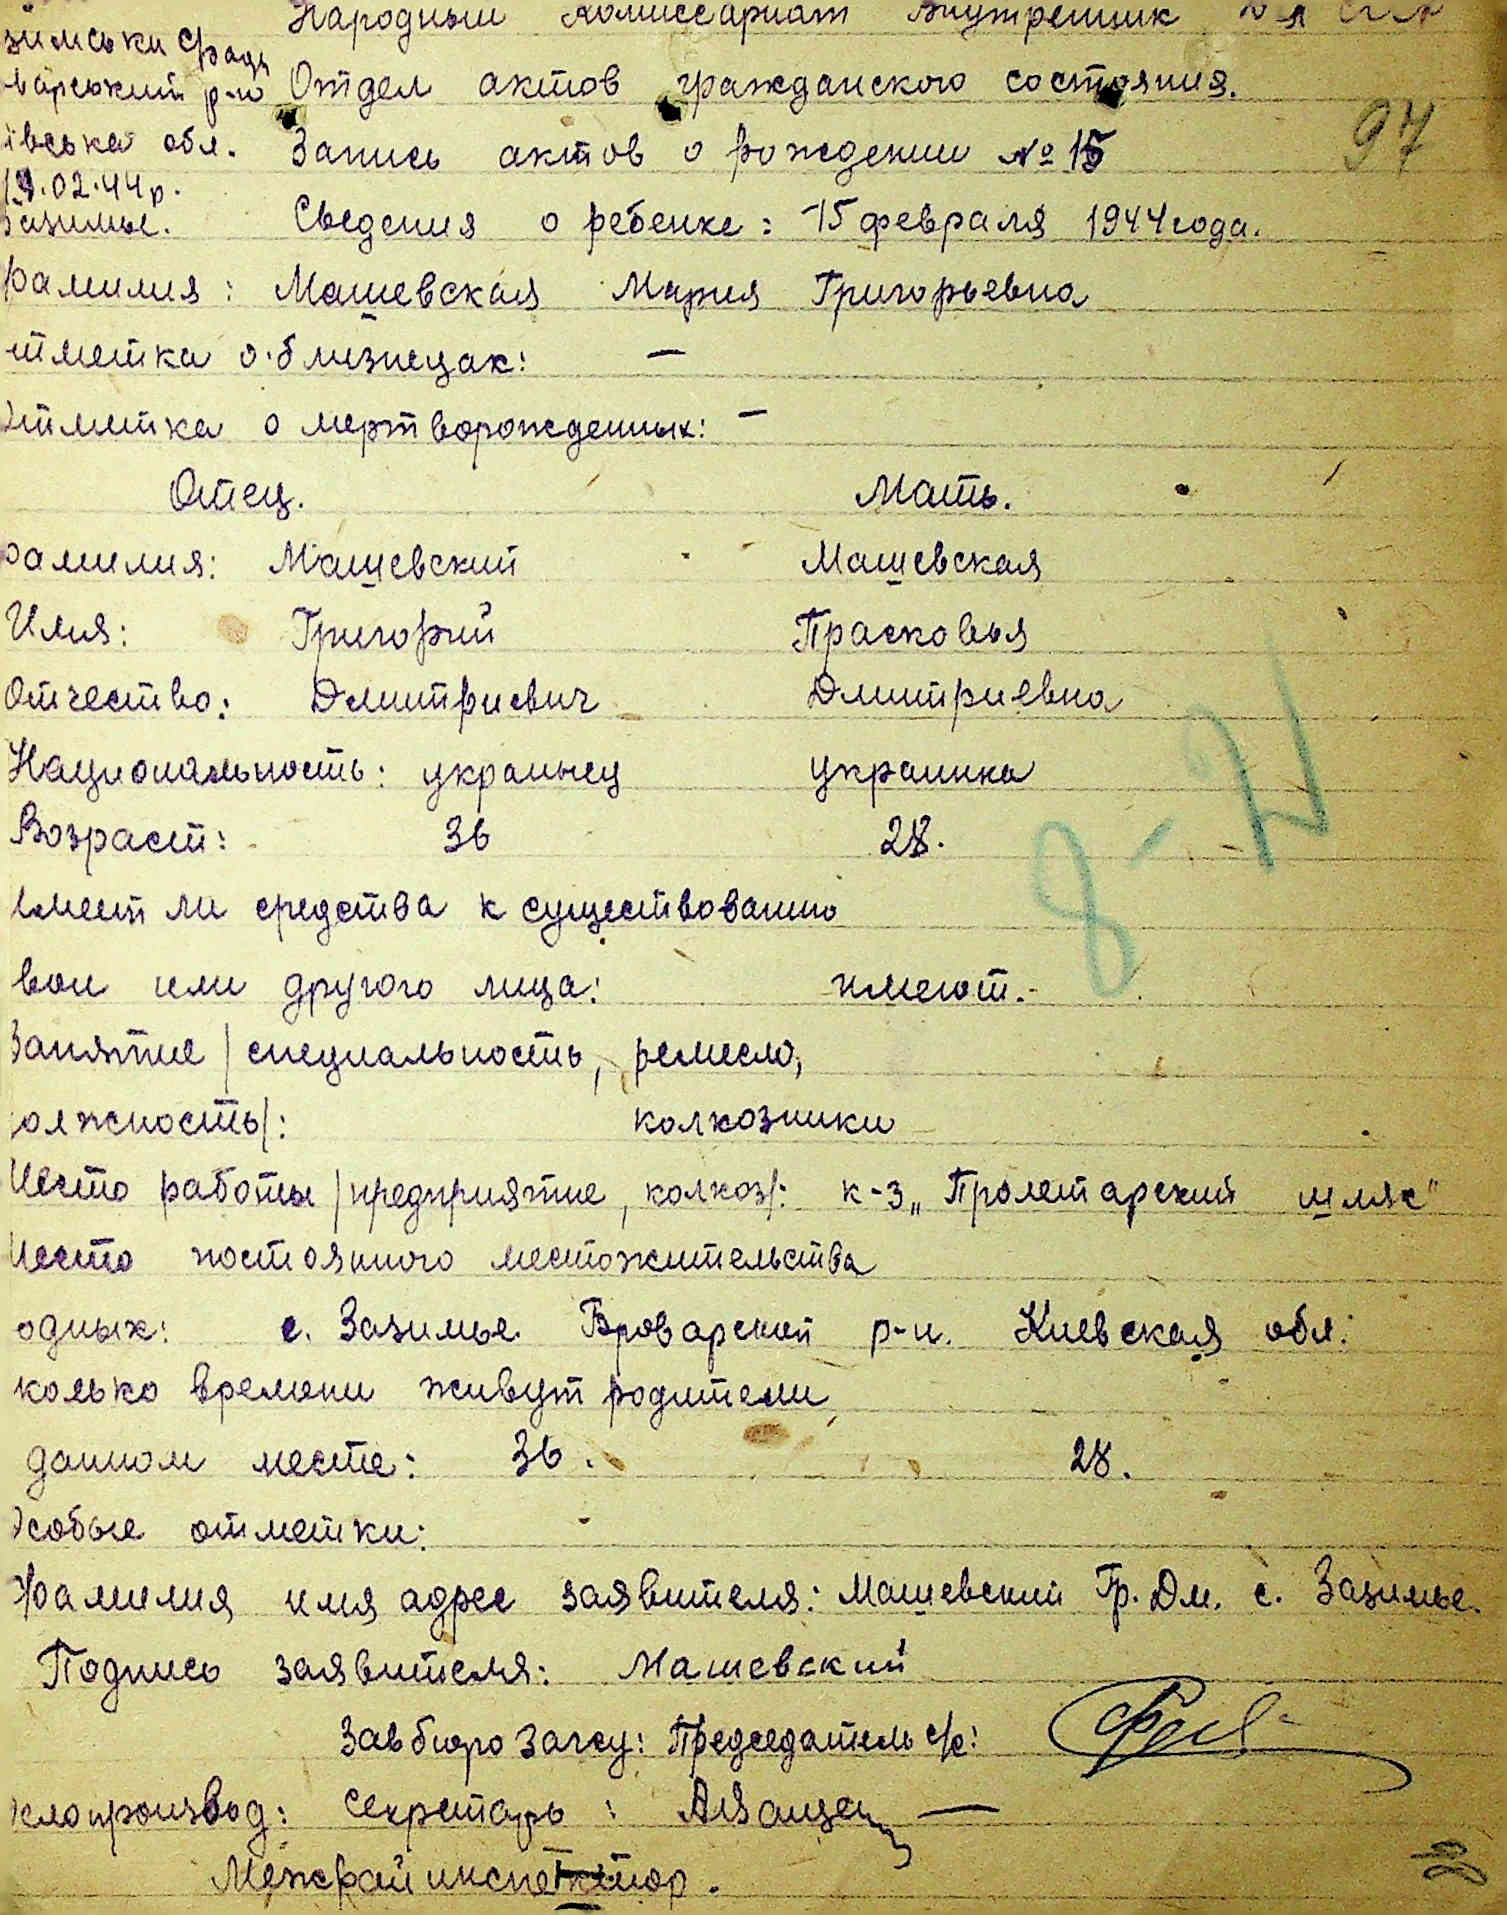 Народный комиссариат внутренних
зимська с/рада
варський р-н Отдел актов гражданского состояния.
97
ївська обл. Запись актов о рождении № 15
19.02.44р.
Зазимье. Сведения о ребенке: 15 февраля 1944 года.
фамилия: Машевская Мария Григорьевна
тметка о близнецах: —
Отметка о мертворожденных: —
Отец. Мать.
фамилия: Машевский Машевская
Имя: Григорий Прасковья
Отчество: Дмитриевич Дмитриевна
Национальность: украинец украинка
Возраст: 36 28.
имеет ли средства к существованию
свои или другого лица: имеют.
Занятие /специальность, ремесло,
должность/: колхозники
Место работы /предприятие, колхоз/: к-з „Пролетарский шлях"
Место постоянного местожительства
одных: с. Зазимье Броварской р-н. Киевская обл.
колько времени живут родители
данном месте: 36. 28.
Особые отметки:
Фамилия имя адрес заявителя: Машевский Гр. Дм. с. Зазимье.
Подпись заявителя: Машевский
Завбюро Загсу: Председатель с/с:
елопроизвод: Секретарь:
Межрайинспектор.